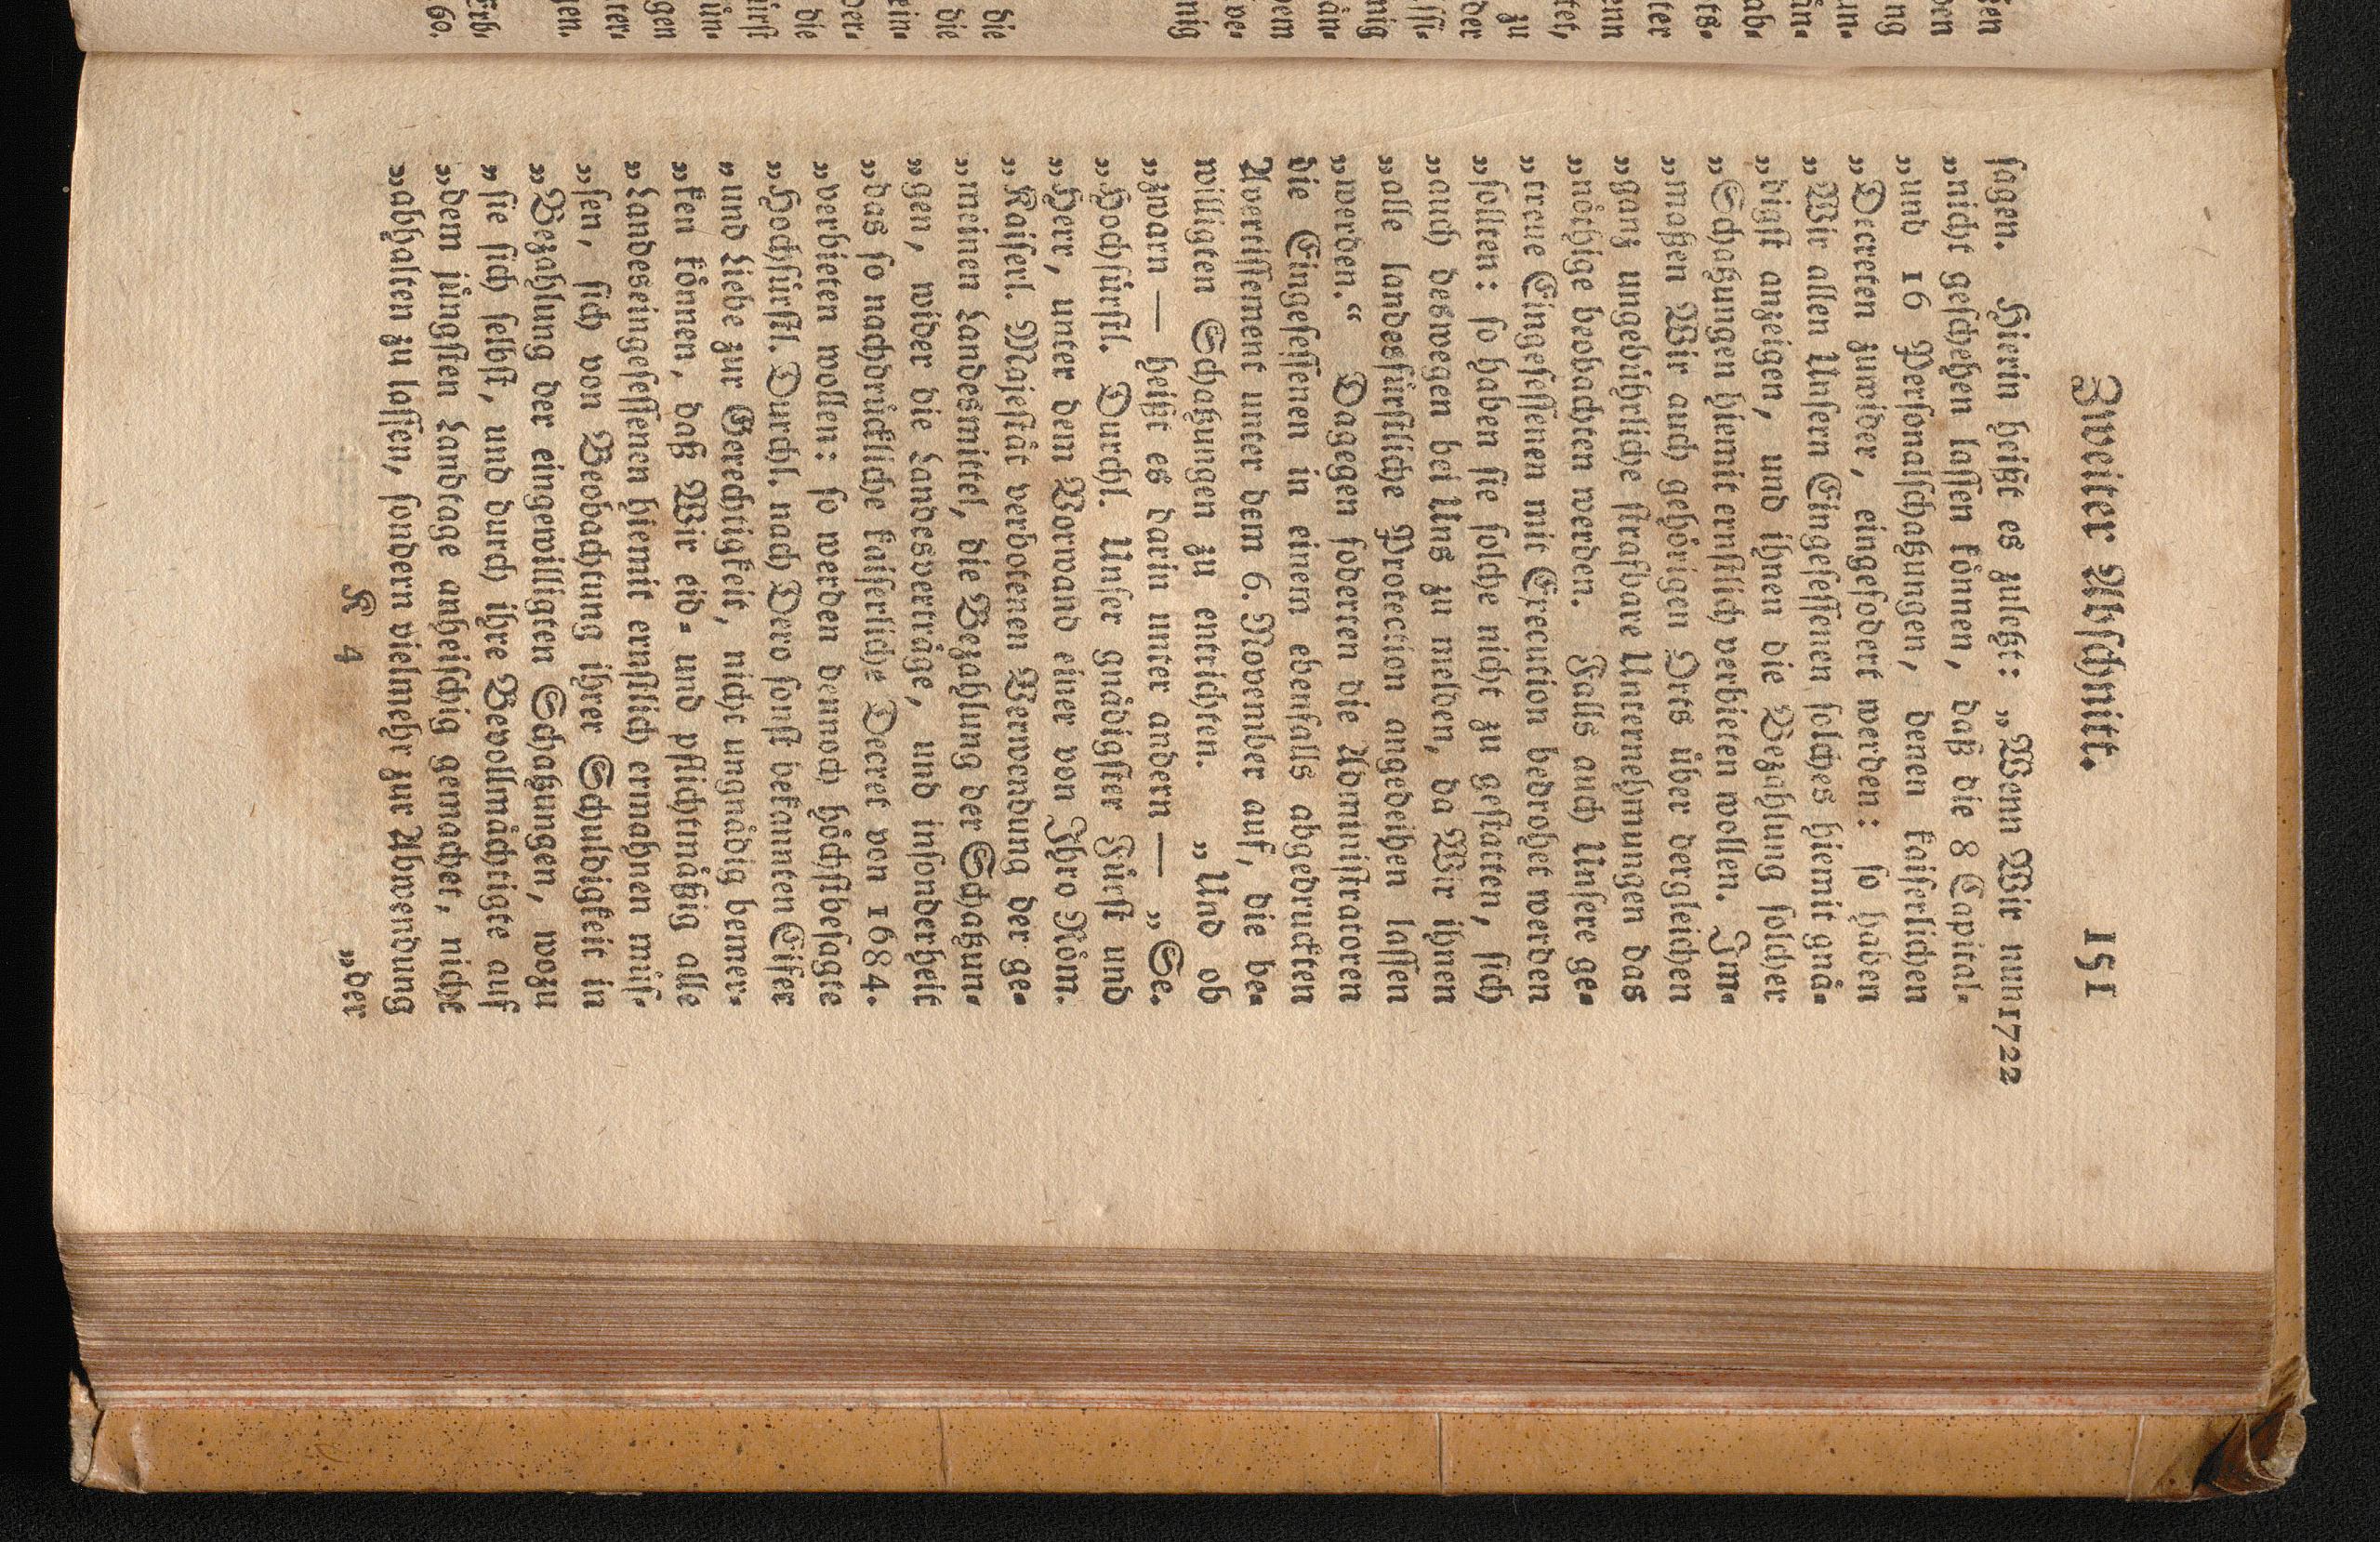 Zweiter Abschnitt. 151
sagen. Hierin heißt es zuletzt: „Wenn Wir nun 1722
„nicht geschehen lassen können, daß die 8 Capital-
„und 16 Personalschatzungen, denen kaiserlichen
„Decreten zuwider, eingefodert werden: so haben
„Wir allen Unsern Eingesessenen solches hiemit gnä-
„digst anzeigen, und ihnen die Bezahlung solcher
„Schatzungen hiemit ernstlich verbieten wollen. Im-
„maßen Wir auch gehörigen Orts über dergleichen
„ganz ungebührliche strafbare Unternehmungen das
„nöthige beobachten werden. Falls auch Unsere ge-
„treue Eingesessenen mit Execution bedrohet werden
„sollten: so haben sie solche nicht zu gestatten, sich
„auch deswegen bei Uns zu melden, da Wir ihnen
„alle landesfürstliche Protection angedeihen lassen
„werden.“ Dagegen foderen die Administratoren
die Eingesessenen in einem ebenfalls abgedruckten
Avertissement unter dem 6. November auf, die be-
willigten Schatzungen zu entrichten. „Und ob
„zwarn — heißt es darin unter andern — „Se.
„Hochfürstl. Durchl. Unser gnädigster Fürst und
„Herr, unter dem Vorwand einer von Ihro Röm.
„Kaiserl. Majestät verbotenen Verwendung der ge-
„meinen Landesmittel, die Bezahlung der Schatzun-
„gen, wider die Landesverträge, und insonderheit
„das so nachdrückliche kaiserliche Decret von 1684.
„verbieten wollen: so werden dennoch höchstbesagte
„Hochfürstl. Durchl. nach Dero sonst bekannten Eifer
„und Liebe zur Gerechtigkeit, nicht ungnädig bemer-
„ken können, daß Wir eid- und pflichtmäßig alle
„Landeseingesessenen hiemit ernstlich ermahnen müs-
„sen, sich von Beobachtung ihrer Schuldigkeit in
„Bezahlung der eingewilligten Schatzungen, wozu
„sie sich selbst, und durch ihre Bevollmächtigte auf
„dem jüngsten Landtage anheischig gemachet, nicht
„abhalten zu lassen, sondern vielmehr zur Abwendung
K 4 „der